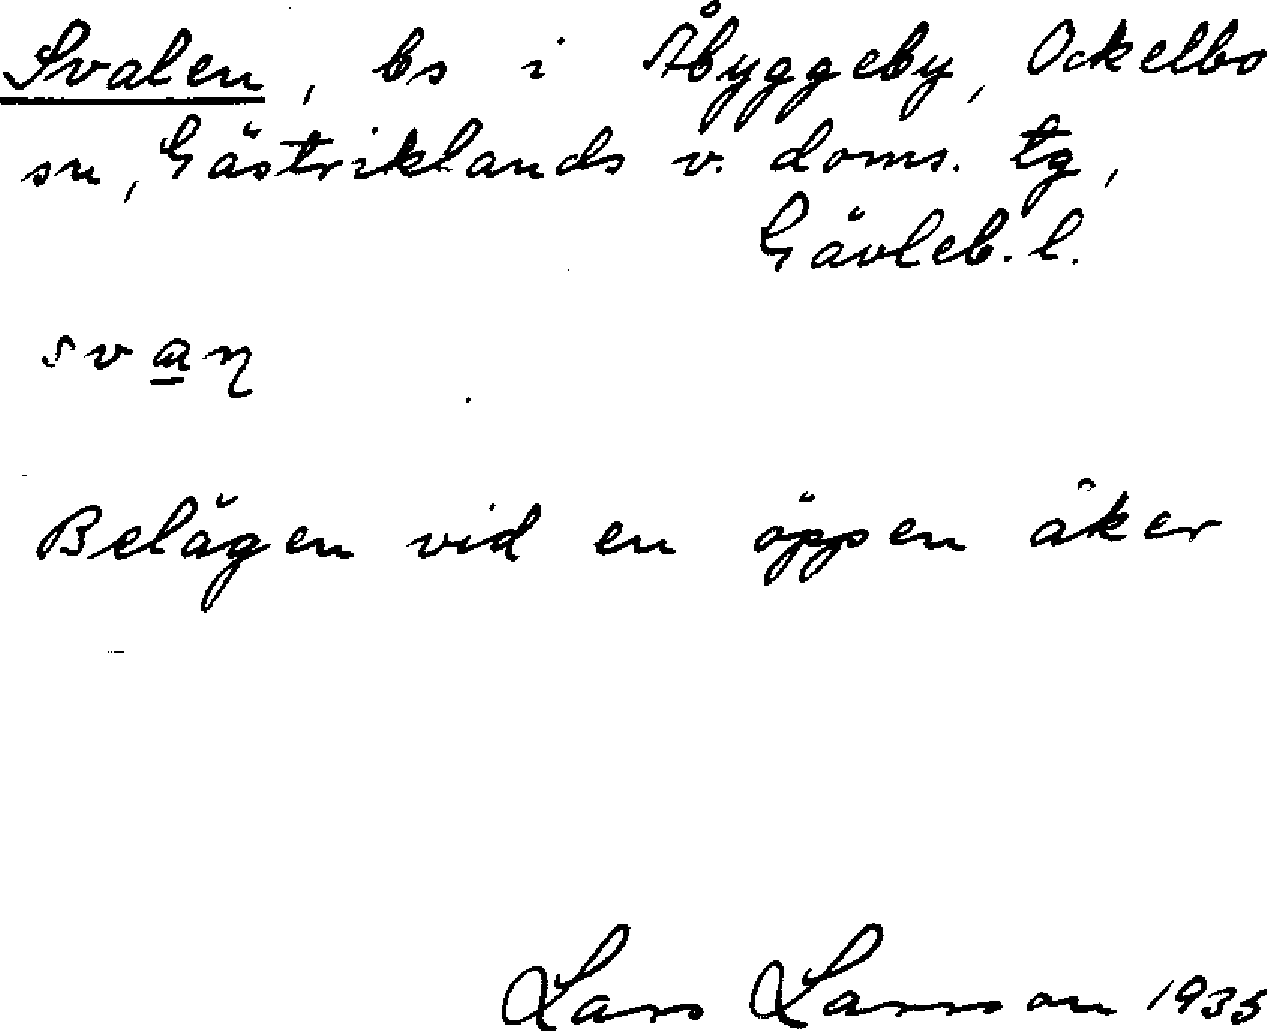 Svalen, bs i Åbyggeby, Ockelbo
sn, Gästriklands v. doms. tg,
Gävleb. l.
svaɳ
Belägen vid en öppen åker
Lars Larsson 1935